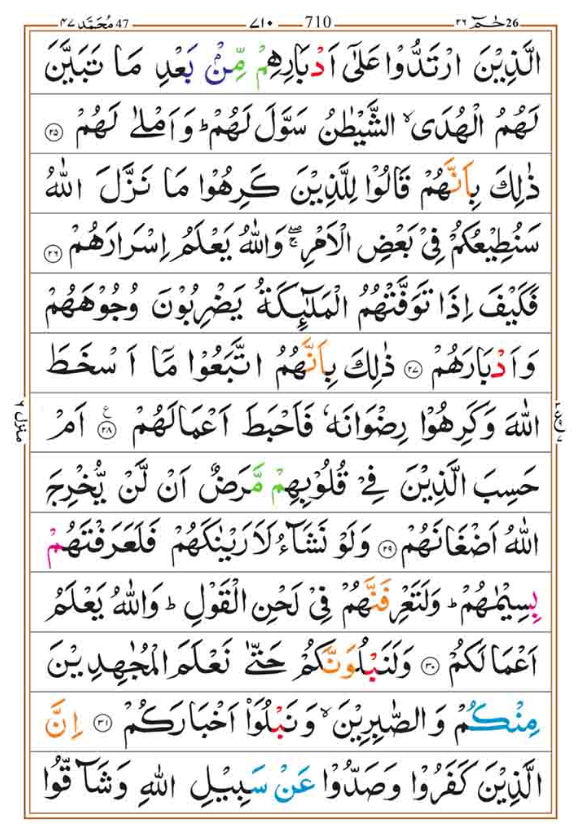 محمد ٤٧ 47 ٧١٠ 710 حٰمٓ ٢٦ 26
الَّذِيْنَ ارْتَدُّوْا عَلٰٓى اَدْبَارِهِمْ مِّنْۢ بَعْدِ مَا تَبَيَّنَ
لَهُمُ الْهُدَى ۙ الشَّيْطٰنُ سَوَّلَ لَهُمْ ؕ وَاَمْلٰى لَهُمْ ۝٢٥
ذٰلِكَ بِاَنَّهُمْ قَالُوْا لِلَّذِيْنَ كَرِهُوْا مَا نَزَّلَ اللّٰهُ
سَنُطِيْعُكُمْ فِيْ بَعْضِ الْاَمْرِ ۖۚ وَاللّٰهُ يَعْلَمُ اِسْرَارَهُمْ ۝٢٦
فَكَيْفَ اِذَا تَوَفَّتْهُمُ الْمَلٰٓئِكَةُ يَضْرِبُوْنَ وُجُوْهَهُمْ
وَاَدْبَارَهُمْ ۝٢٧ ذٰلِكَ بِاَنَّهُمُ اتَّبَعُوْا مَآ اَسْخَطَ
اللّٰهَ وَكَرِهُوْا رِضْوَانَهٗ فَاَحْبَطَ اَعْمَالَهُمْ ۝٢٨ ع اَمْ
حَسِبَ الَّذِيْنَ فِيْ قُلُوْبِهِمْ مَّرَضٌ اَنْ لَّنْ يُّخْرِجَ
اللّٰهُ اَضْغَانَهُمْ ۝٢٩ وَلَوْ نَشَآءُ لَاَرَيْنٰكَهُمْ فَلَعَرَفْتَهُمْ
بِسِيْمٰهُمْ ؕ وَلَتَعْرِفَنَّهُمْ فِيْ لَحْنِ الْقَوْلِ ؕ وَاللّٰهُ يَعْلَمُ
اَعْمَالَكُمْ ۝٣٠ وَلَنَبْلُوَنَّكُمْ حَتّٰى نَعْلَمَ الْمُجٰهِدِيْنَ
مِنْكُمْ وَالصّٰبِرِيْنَ ۙ وَنَبْلُوَا۟ اَخْبَارَكُمْ ۝٣١ اِنَّ
الَّذِيْنَ كَفَرُوْا وَصَدُّوْا عَنْ سَبِيْلِ اللّٰهِ وَشَآقُّوا
منزل ٦